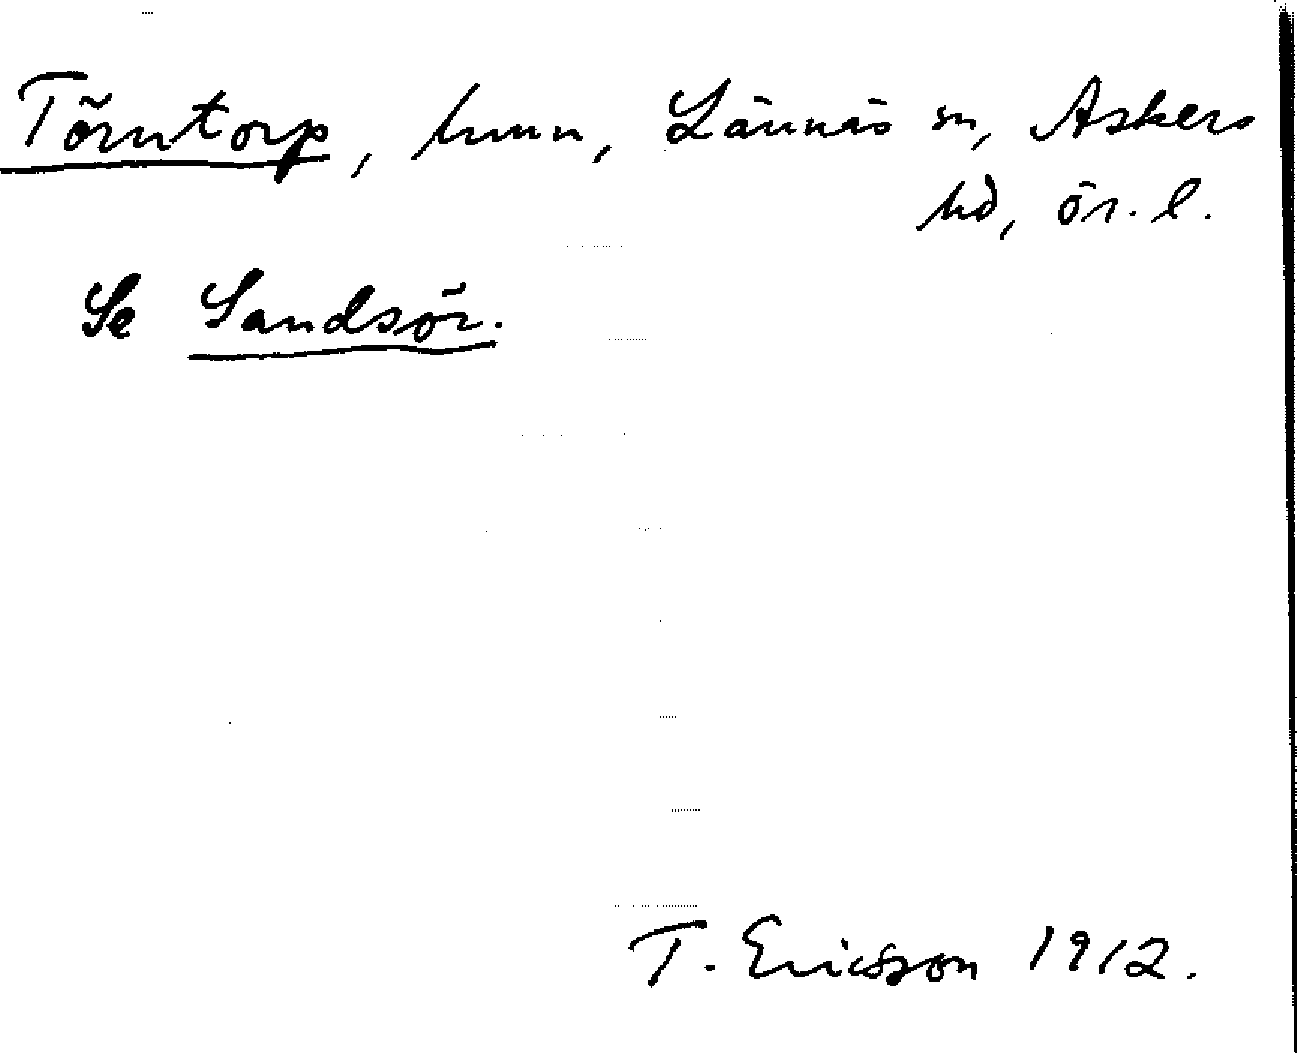 Törntorp, hmn, Lännäs sn, Askers
hd, ör. l.
Se Sandsör.
T. Ericsson 1912.